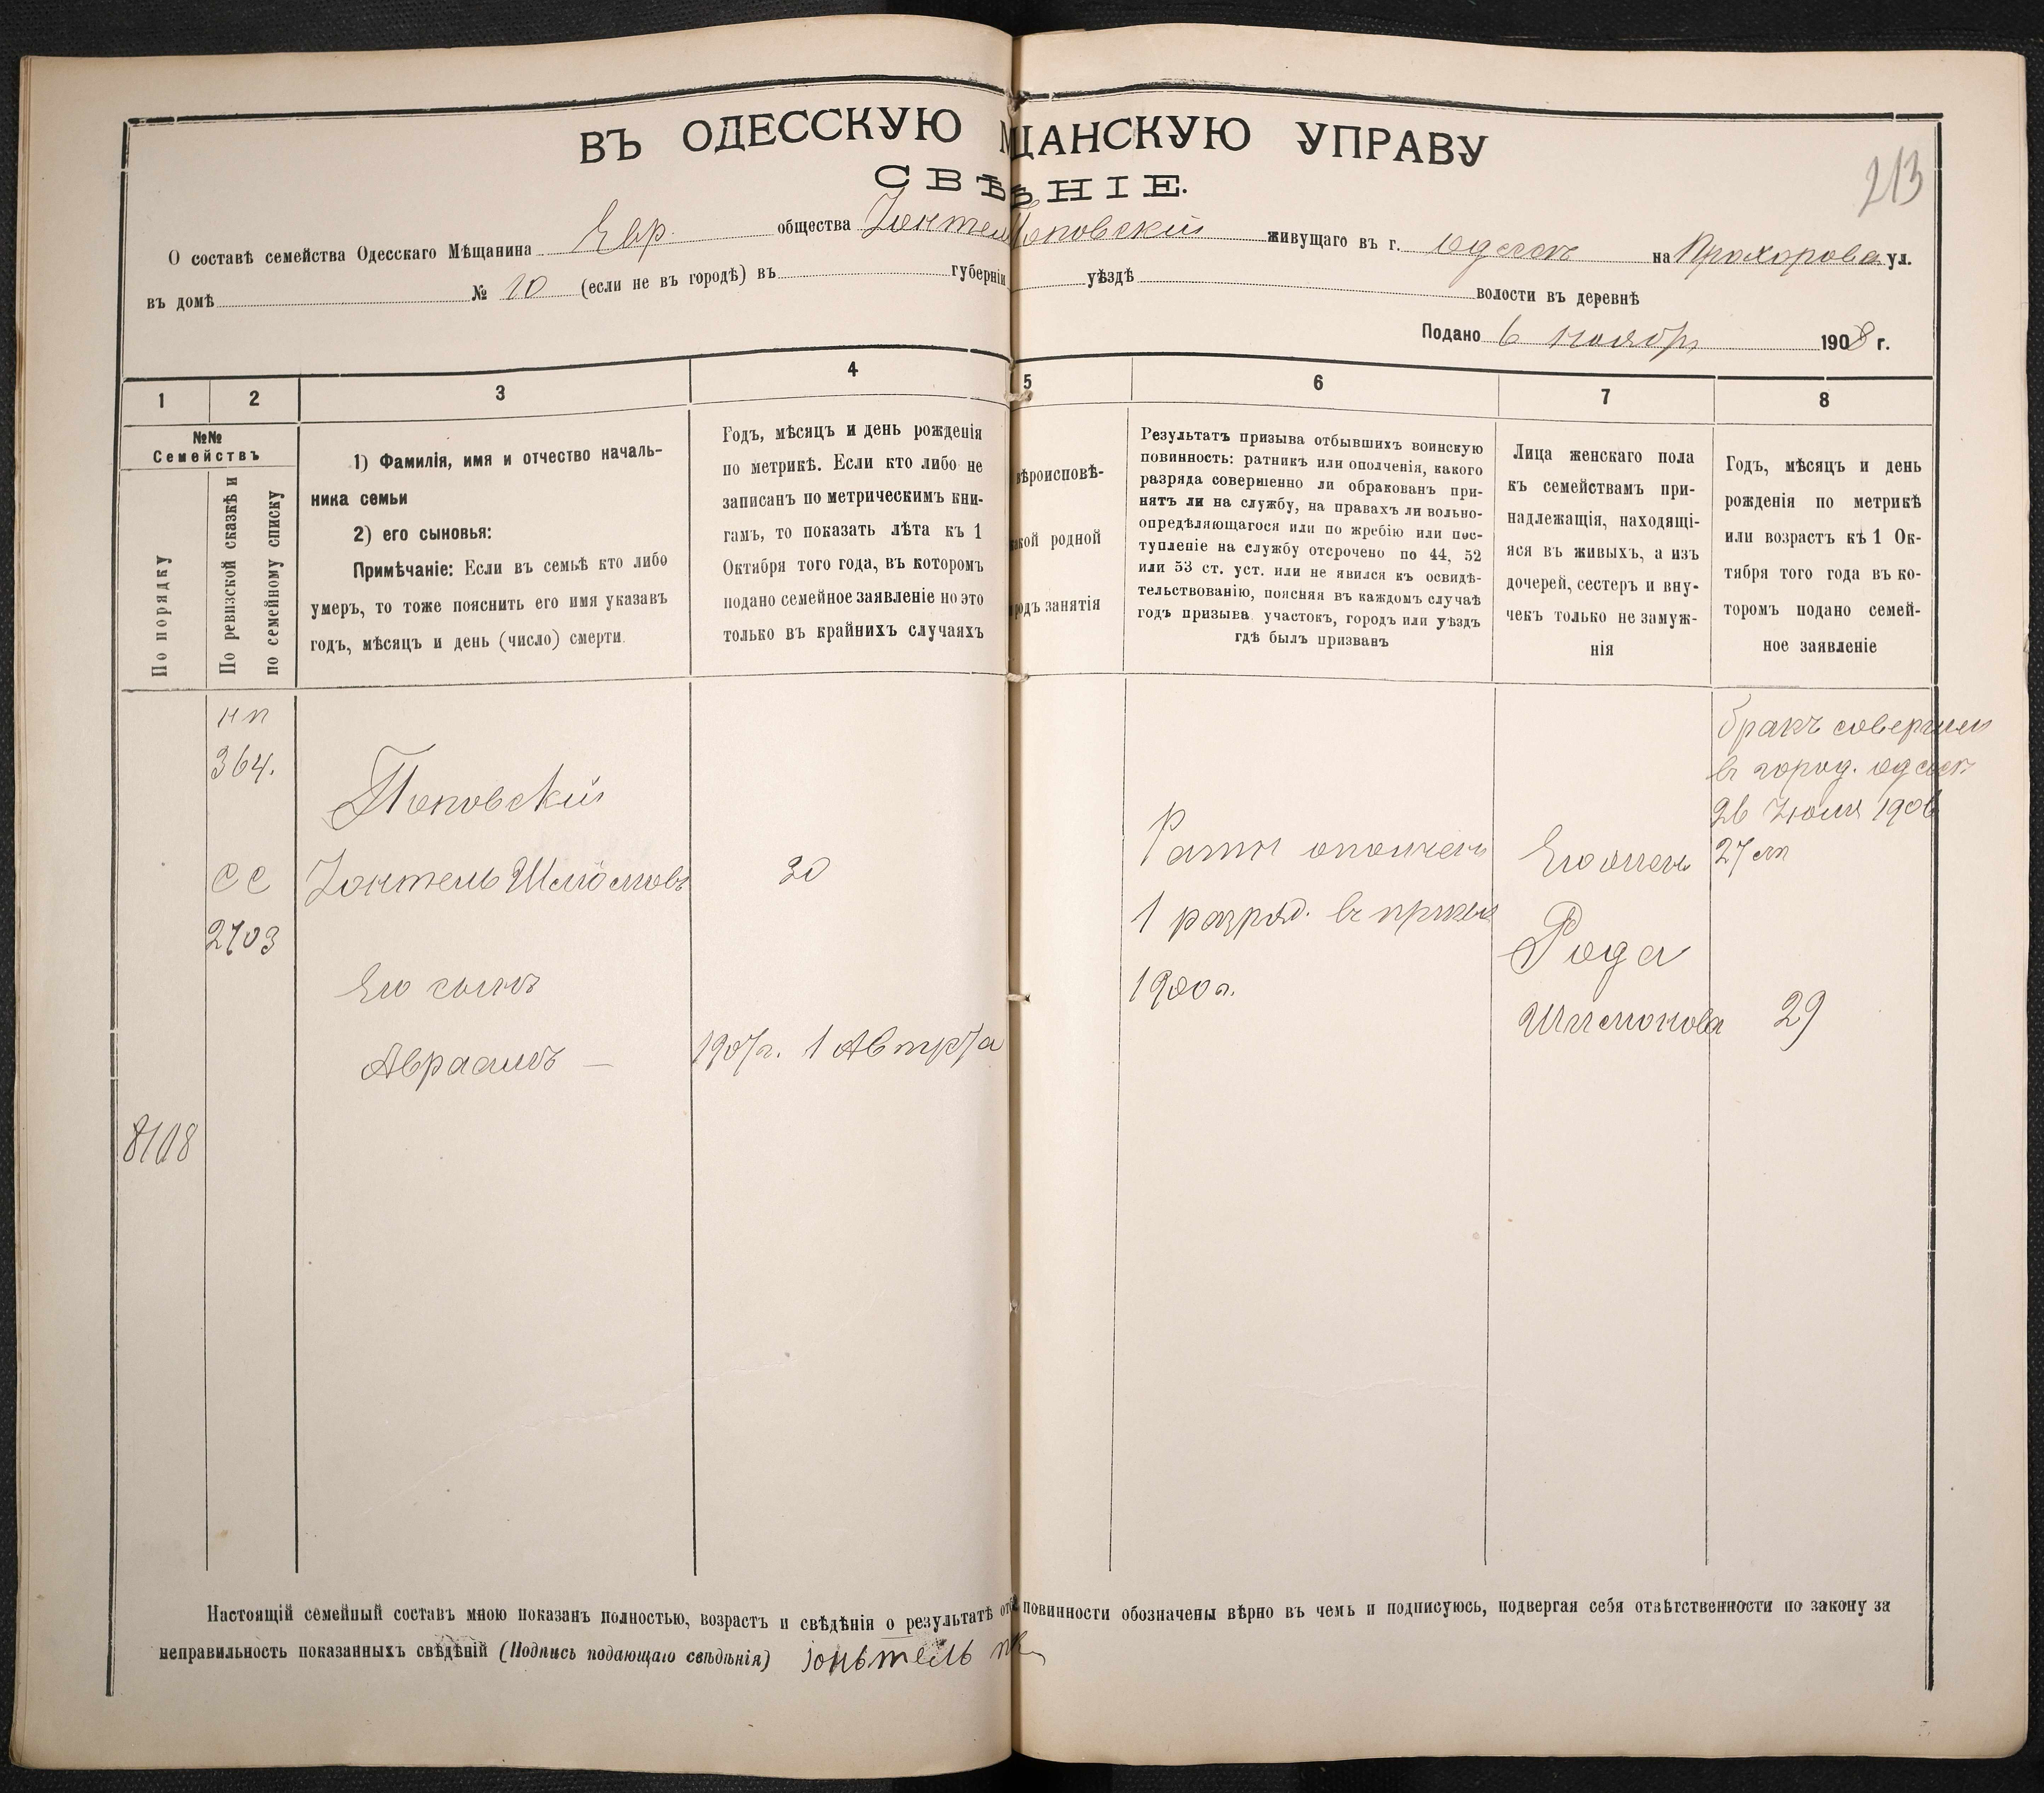 ВЪ ОДЕССКУЮ МЩАНСКУЮ УПРАВУ
СВѢѢНІЕ.
213
О составѣ семейства Одесскаго Мѣщанина Евр. общества Іонтель Поповскій живущаго въ г. Одессѣ на Прохорова ул.
въ домѣ № 20 (если не въ городѣ) въ губерніи уѣздѣ волости въ деревнѣ
Подано 6 ноябр 1908 г.
1 2 3 4 5 6 7 8
№№
Семействъ
По порядку
По ревизской сказкѣ и
по семейному списку
1) Фамилія, имя и отчество началь-
ника семьи
2) его сыновья:
Примѣчаніе: Если въ семьѣ кто либо
умеръ, то тоже пояснить его имя указавъ
годъ, мѣсяцъ и день (число) смерти.
Годъ, мѣсяцъ и день рожденія
по метрикѣ. Если кто либо не
записанъ по метрическимъ кни-
гамъ, то показать лѣта къ 1
Октября того года, въ которомъ
подано семейное заявленіе но это
только въ крайнихъ случаяхъ
вѣроисповѣ-
какой родной
родъ занятія
Результатъ призыва отбывшихъ воинскую
повинность: ратникъ или ополченія, какого
разряда совершенно ли обракованъ при-
нятъ ли на службу, на правахъ ли вольно-
опредѣляющагося или по жребію или пос-
тупленіе на службу отсрочено по 44, 52
или 53 ст. уст. или не явился къ освидѣ-
тельствованію, поясняя въ каждомъ случаѣ
годъ призыва участокъ, городъ или уѣздъ
гдѣ былъ призванъ
Лица женскаго пола
къ семействамъ при-
надлежащія, находящі-
яся въ живыхъ, а изъ
дочерей, сестеръ и вну-
чекъ только не замуж-
нія
Годъ, мѣсяцъ и день
рожденія по метрикѣ
или возрастъ къ 1 Ок-
тября того года въ ко-
торомъ подано семей-
ное заявленіе
нп
364.
Поповскій
СС
2703
Іонтель Шлёмовъ
30
Его сынъ
Авраамъ —
1907г. 1 Августа
8108
Ратн ополчен
1 разряд. въ призыв
1900г.
Его жена
Рода
Шимонова
бракъ соверши
въ город. Одесс
26 Іюля 1906
27 лѣ
29
Настоящій семейный составъ мною показанъ полностью, возрастъ и свѣдѣнія о результатѣ отб повинности обозначены вѣрно въ чемъ и подписуюсь, подвергая себя отвѣтственности по закону за
неправильность показанныхъ свѣдѣній (Подпись подающаго свѣдѣнія) Іонътель